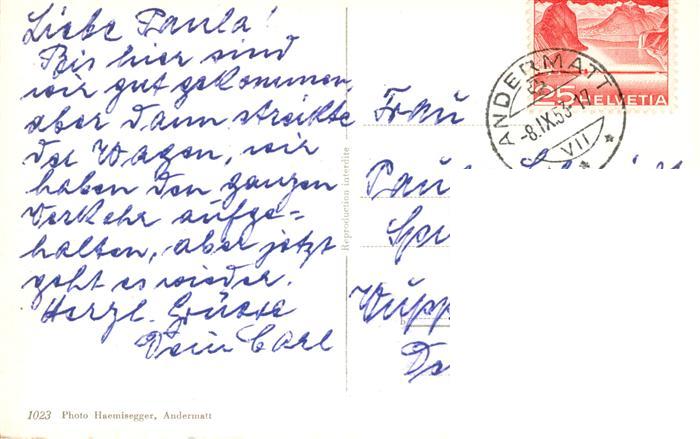 Liebe Paula!
Bis hier sind
wir gut gekommen,
aber dann streikte
der Wagen, wir
haben den ganzen
Verkehr aufge=
halten, aber jetzt
geht es wieder.
Herzl. Grüsse
Dein Carl
1023 Photo Haemisegger, Andermatt
Reproduction interdite
25 HELVETIA
ANDERMATT
-8.IX.53-17
VII
Frau
Paul
Wupp